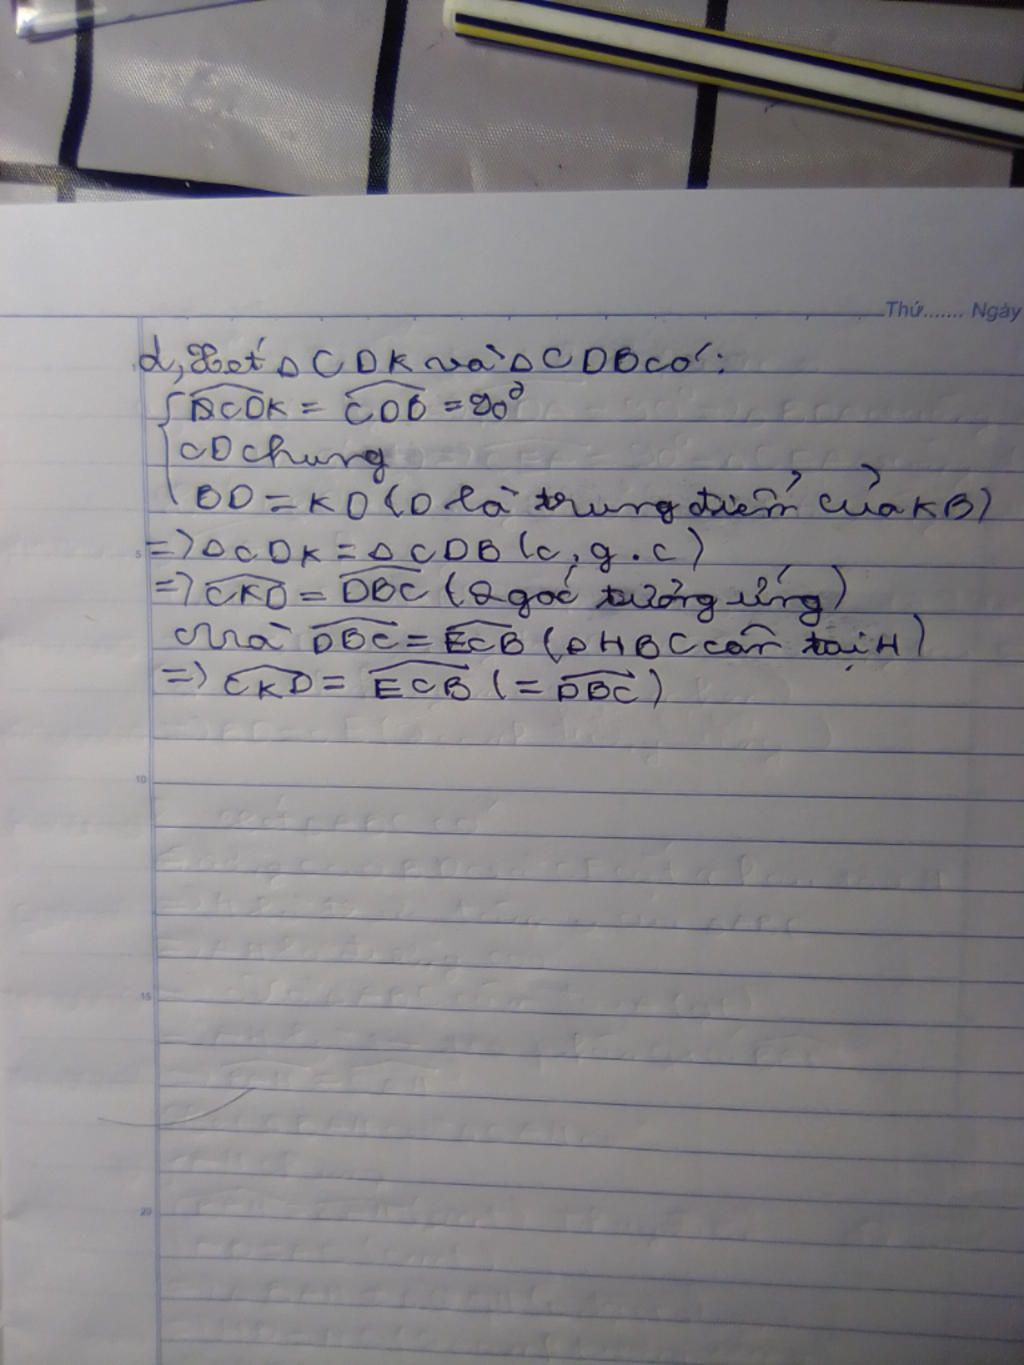 Thứ....... Ngày
d, Xét △CDK và △CDB có:
{ △CDK = CDB = 90°
CD chung
BD = KD (D là trung điểm của KB)
5
=> △CDK = △CDB (c.g.c)
=> CKD = DBC (2 góc tương ứng)
Mà DBC = ECB (△HBC cân tại H)
=> CKD = ECB (= DBC)
10
15
20